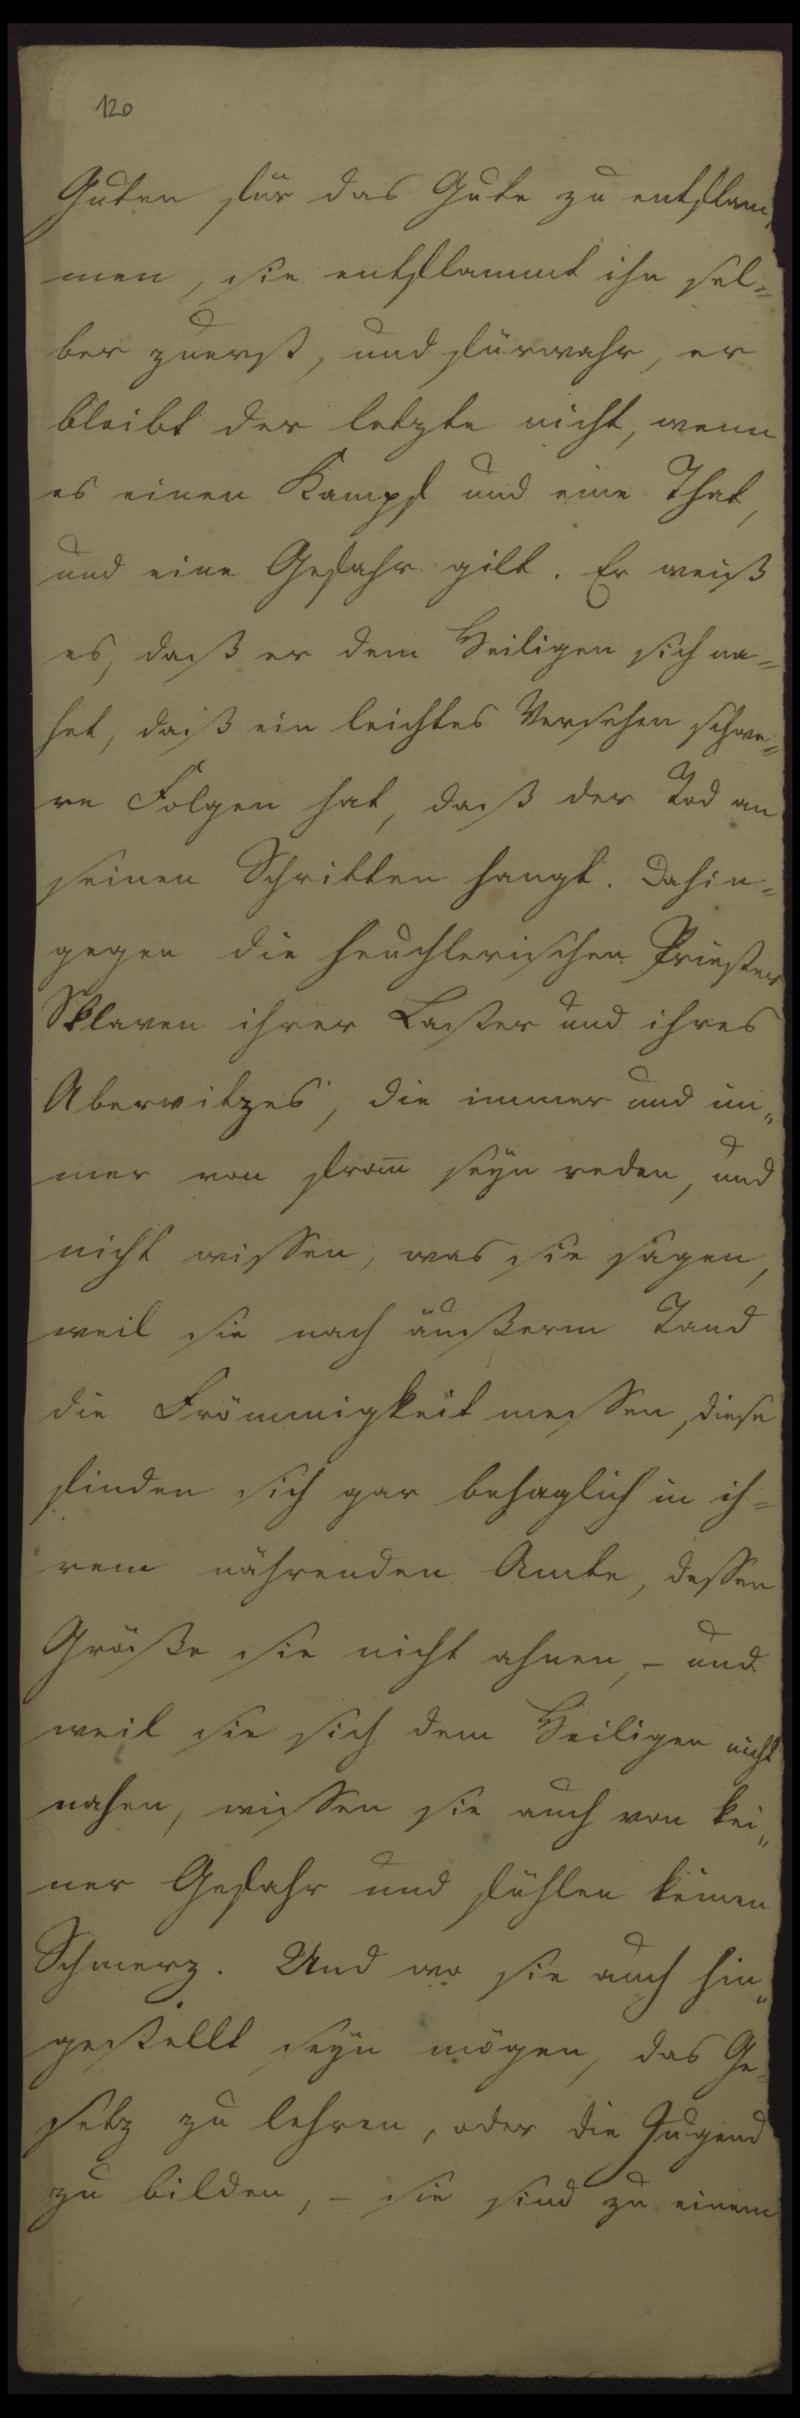 120
Guten für das Gute zu entflam-
men, sie entflammt ihn sel=
ber zuerst, und fürwahr, er
bleibt der letzte nicht, wenn
es einen Kampf und eine That,
und eine Gefahr gilt. Er weiß
es, daß er dem Heiligen sich na=
het, daß ein leichtes Versehen schwe=
re Folgen hat, daß der Tod an
seinen Schritten hangt. Dahin=
gegen die heuchlerischen Priester
Sklaven ihrer Laster und ihres
Aberwitzes, die immer und im„
mer von from̅ seyn reden, und
nicht wissen, was sie sagen,
weil sie nach äußerm Tand
die Frömmigkeit messen, diese
finden sich gar behaglich in ih=
rem nährenden Amte, dessen
Größe sie nicht ahnen, – und
weil sie sich dem Heiligen nicht
nahen, wissen sie auch von kei„
ner Gefahr und fühlen keinen
Schmerz. Und wo sie auch hin„
gestellt seyn mögen, das Ge=
setz zu lehren, oder die Jugend
zu bilden, – sie sind zu einem